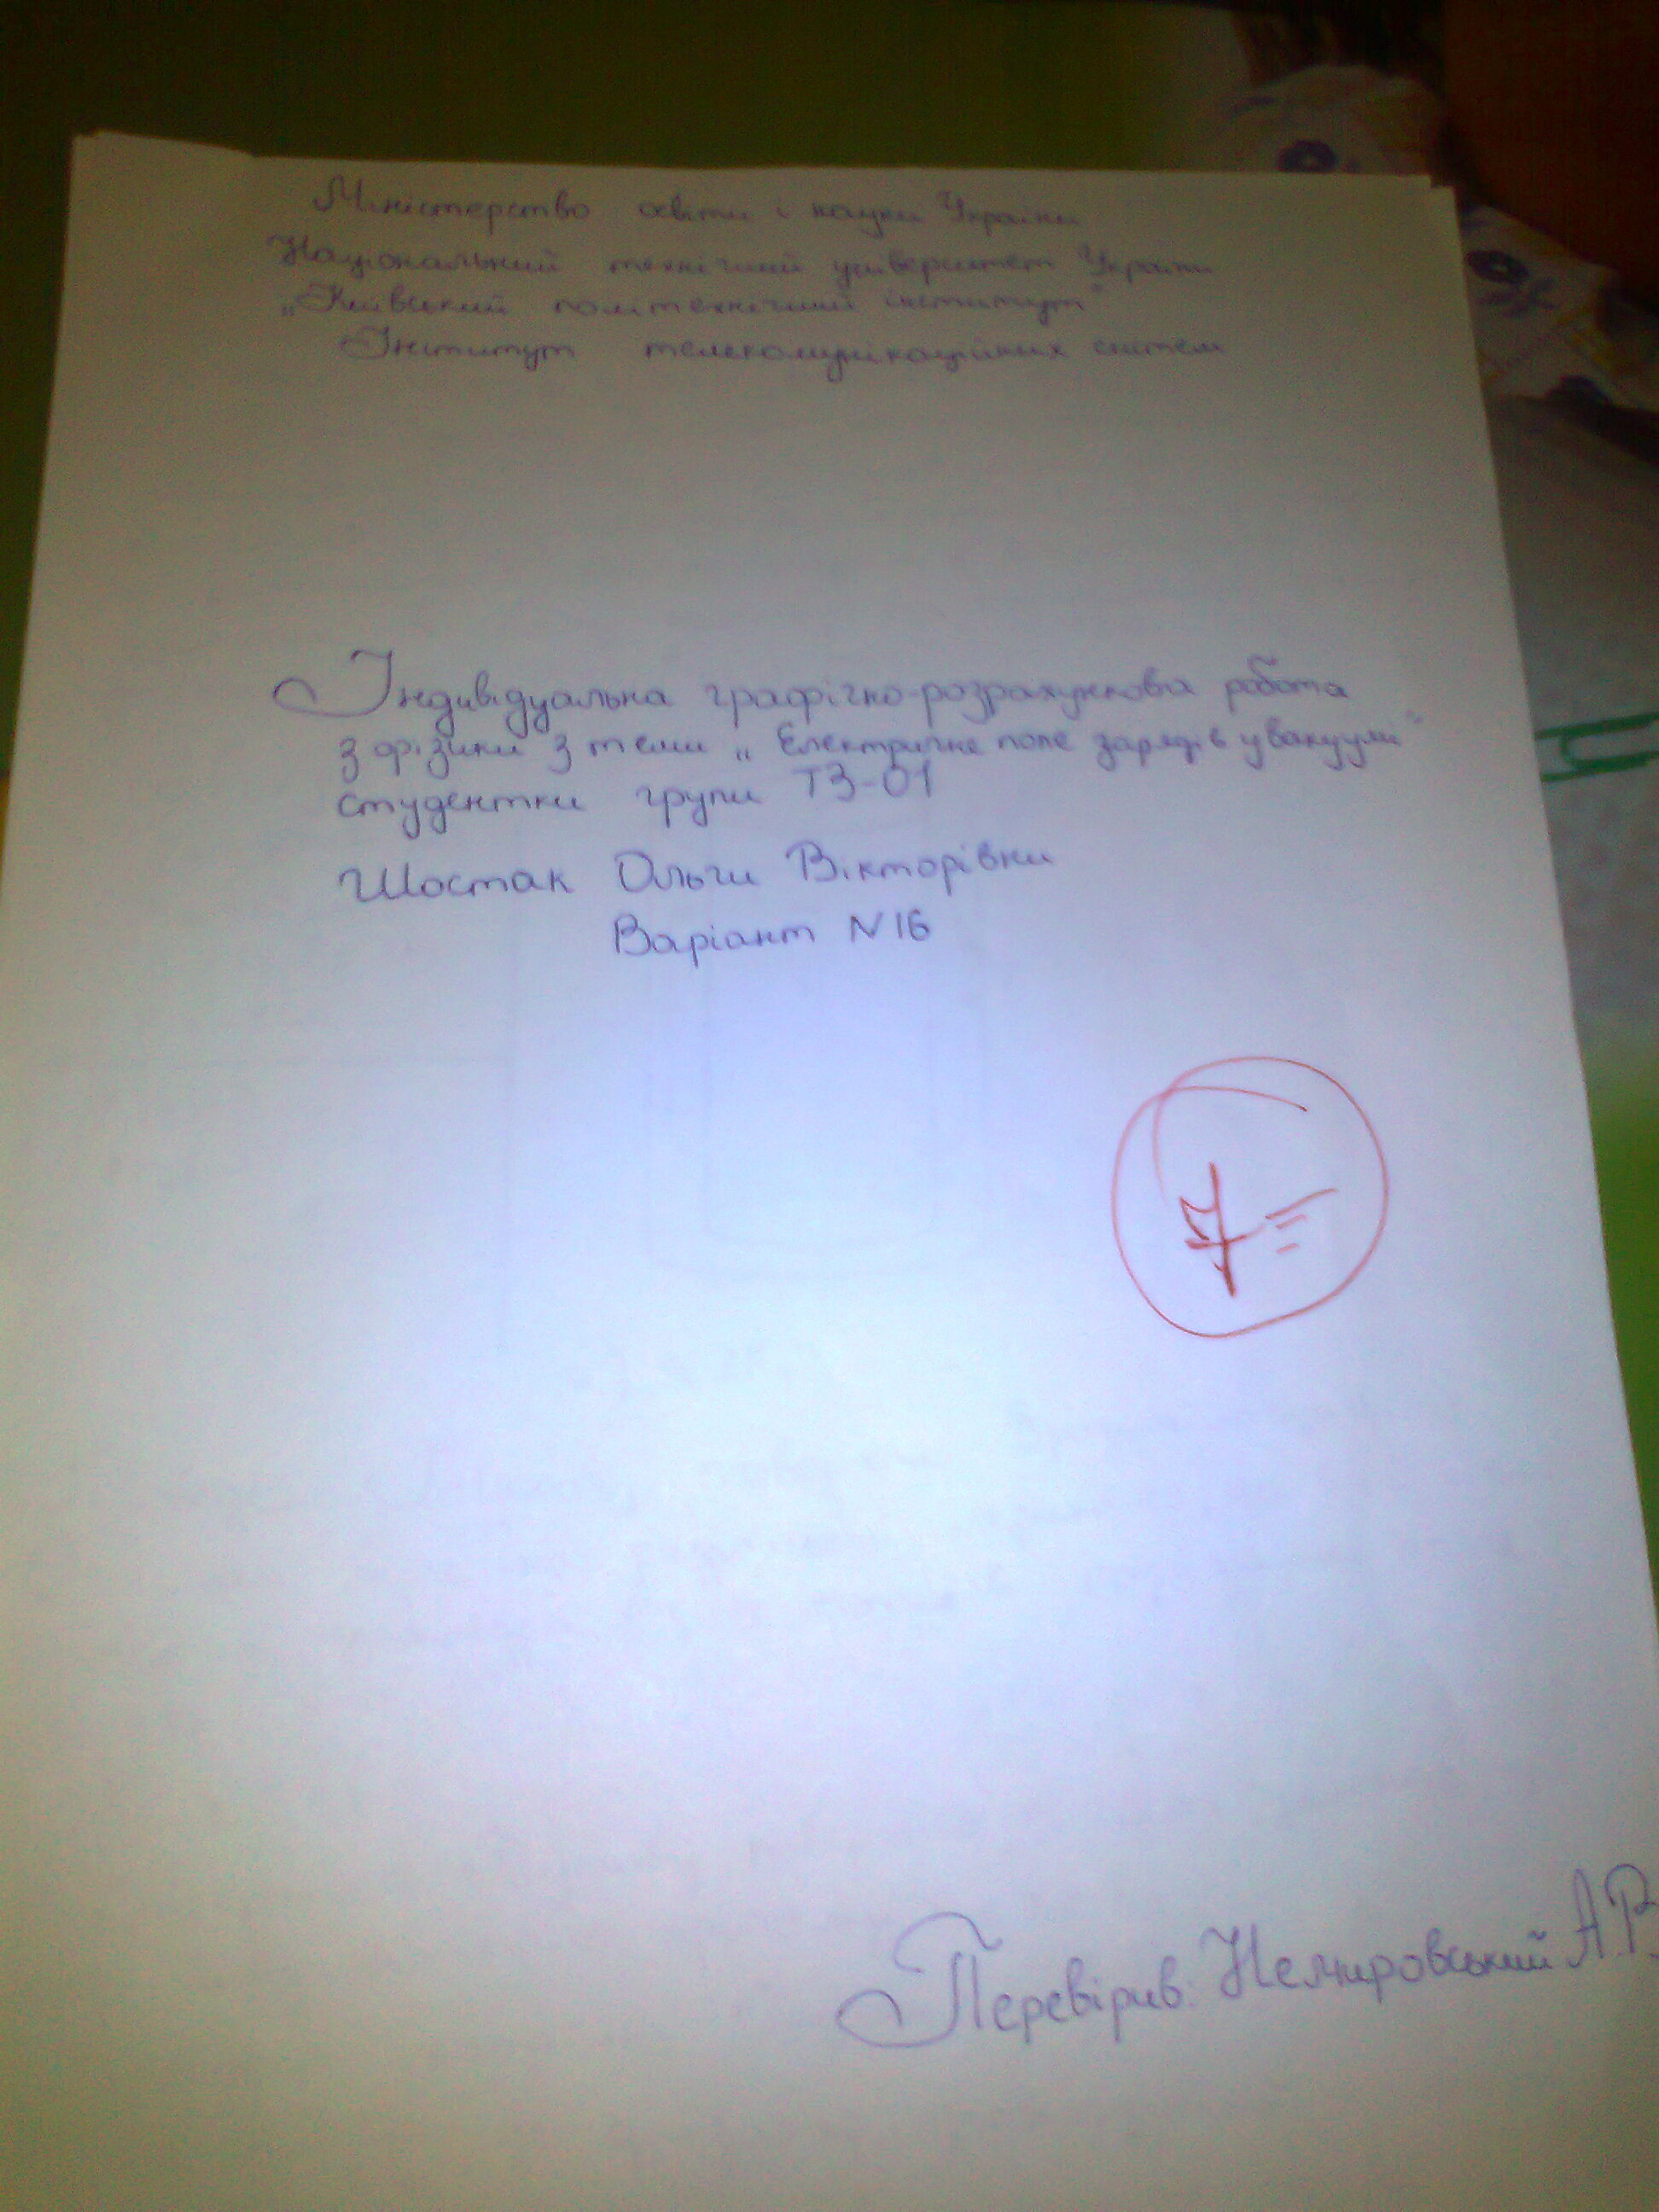 Міністерство освіти і науки України
Національний технічний університет України
„Київський політехнічний інститут"
Інститут телекомунікаційних систем
Індивідуальна графічно-розрахункова робота
з фізики з теми „Електричне поле зарядів у вакуумі"
студентки групи ТЗ-01
Шостак Ольги Вікторівни
Варіант N16
7=
Перевірив: Немировський А.Р.